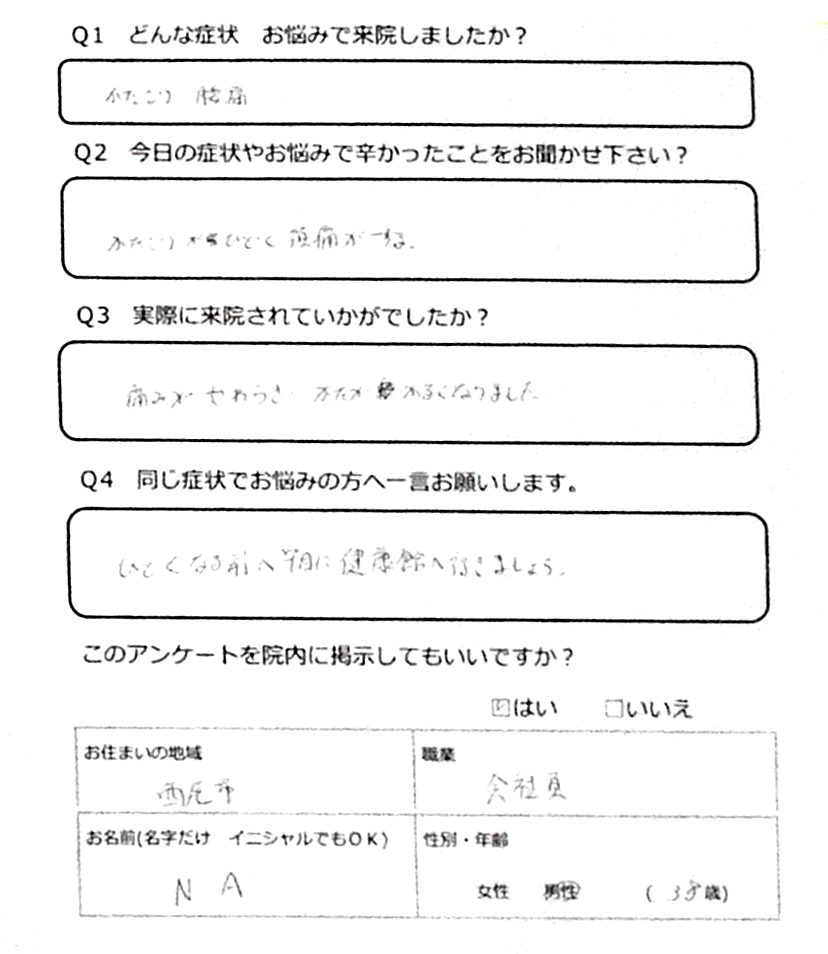 Q1 どんな症状 お悩みで来院しましたか?
かたこり 腰痛
Q2 今日の症状やお悩みで辛かったことをお聞かせ下さい?
かたこりがひどく頭痛がする。
Q3 実際に来院されていかがでしたか?
痛みがやわらぎ かたが かるくなりました
Q4 同じ症状でお悩みの方へ一言お願いします。
ひどくなる前へ早目に健康館へ行きましょう。
このアンケートを院内に掲示してもいいですか?
☑はい □いいえ
お住まいの地域 職業
西尾市 会社員
お名前(名字だけ イニシャルでもOK) 性別・年齢
N A 女性 男性 (38歳)